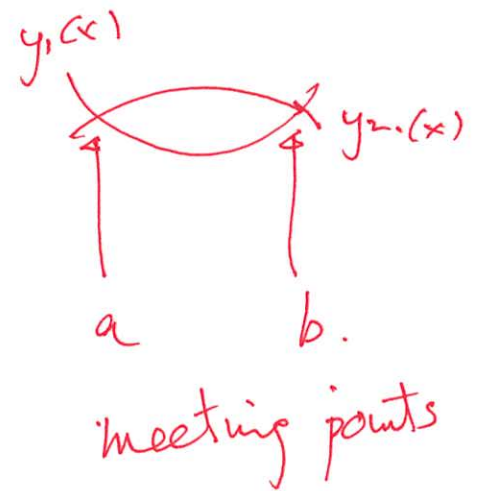 y₁(x)
y₂.(x)
a
b.
meeting points